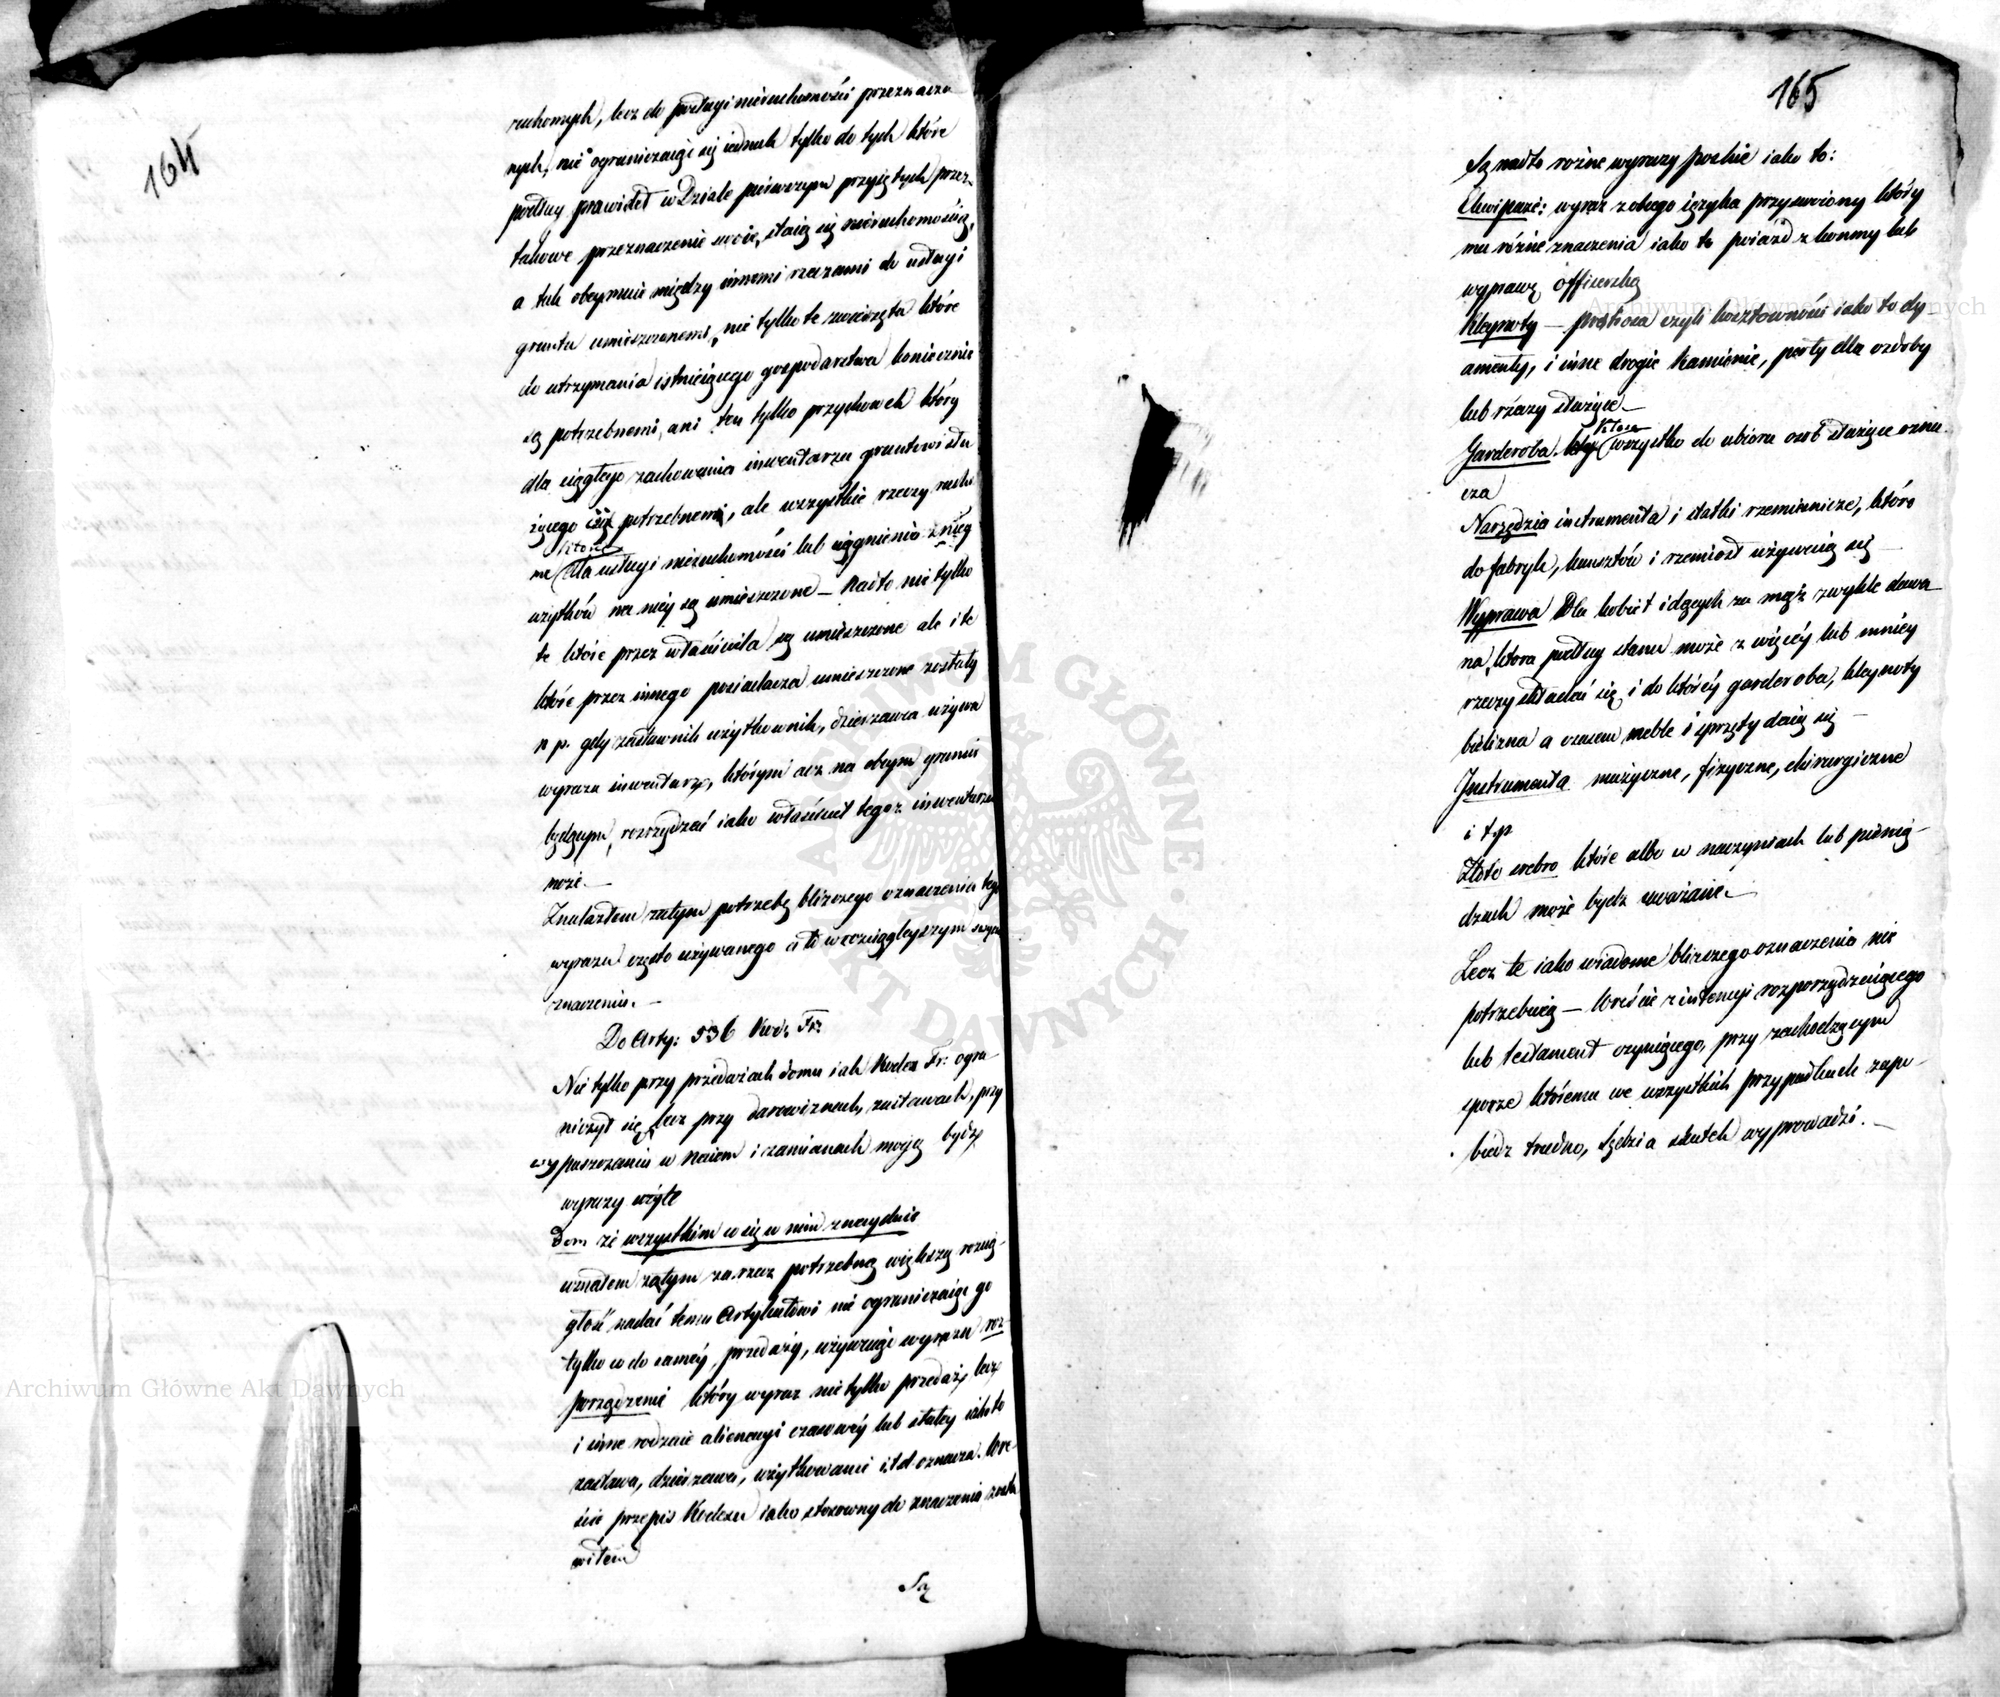 164
ruchomych, lecz do posługi nieruchomości przeznaczo
nych, nie ograniczaiąc się iednak tylko do tych które
podług prawideł w Dziale pierwszym przyiętych przez
takowe przeznaczenie swoie, staią się nieruchomością,
a tak obeymuie między innemi rzeczami do usługi
gruntu umieszczonemi, nie tylko te zwierzęta które
do utrzymania istnieiącego gospodarstwa koniecznie
są potrzebnemi, ani ten tylko przychowek który
dla ciągłego zachowania inwentarza gruntowi słu
żącego iest potrzebnem, ale wszystkie rzeczy rucho
które
me dla usługi nieruchomości lub ciągnienia z niey
użytków na niey są umieszczone — Nadto nie tylko
te które przez właściciela są umieszczone ale i te
które przez innego posiadacza umieszczone zostały
n p. gdy zastawnik użytkownik, dzierżawca używa
wyrazu inwentarz, którym acz na obcym gruncie
będącym, rozrządzać iako właściciel tegoż inwentarza
może. —
Znalazłem zatym potrzebę bliższego oznaczenia tego
wyrazu często używanego a to w rozciągleyszym swym
znaczeniu. —
Do Arty: 536 Kod: Fr:
Nie tylko przy przedażach domu iak Kodex Fr: ogra-
niczył się, lecz przy darowiznach, zastawach, przy
wypuszczaniu w naiem i zamianach mogą bydź
wyrazy użyte
Dom ze wszystkim co się w nim znayduie
uznałem zatym za rzecz potrzebną większą rozcią-
głość nadać temu Artykułowi nie ograniczaiąc go
tylko do samey przedaży, używaiąc wyrazu roz-
porządzenie który wyraz nie tylko przedaż lecz
i inne rodzaie alienacyi czasowey lub stałey iako to
zastawa, dzierżawa, użytkowanie i t d. oznacza. Wre-
ście przepis Kodexu iako stosowny do znaczenia zosta
wiłem
Są
165
Są nadto różne wyrazy polskie iako to:
Ekwipaże: wyraz z obcego ięzyka przyswoiony który
ma różne znaczenia iako to poiazd z końmy lub
wyprawę officerską
Kleynoty — precioza czyli kosztowności iako to dy
amenty, i inne drogie kamienie, perły dla ozdoby
lub rzeczy służące —
która
Garderoba. wszystko do ubioru osob służące ozna
cza
Narzędzia instrumenta i statki rzemieślnicze, które
do fabryk, kunsztów i rzemiosł używaią się —
Wyprawa Dla kobiet idących za mąż zwykle dawa
na, która podług stanu może z więcey lub mniey
rzeczy składać się, i do którey garderoba, kleynoty
bielizna a czasem meble i sprzęty daią się —
Instrumenta muzyczne, fizyczne, chirurgiczne
i t.p
Złoto srebro które albo w naczyniach lub pienią-
dzach może bydź uważane. —
Lecz te iako wiadome bliższego oznaczenia nie
potrzebuią — Wreście z intencyi rozporządzaiącego
lub testament czyniącego, przy zachodzącym
sporze któremu we wszystkich przypadkach zapo-
biedz trudno, Sędzia skutek wyprowadzi. —
Archiwum Główne Akt Dawnych
Archiwum Główne Akt Dawnych
ARCHIWUM GŁÓWNE AKT DAWNYCH